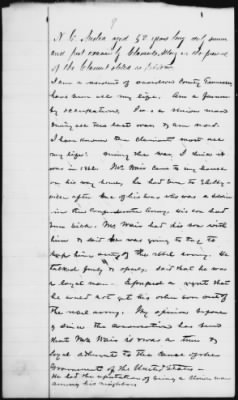 N. C. Aged 52 years being duly sworn
and first examd by Claimants Atty in the presence
of the Claimant states as follows
I am a resident of County Tennessee
have been all my life. Am a farmer
by occupation. I was a Union man
during all the late war & am now.
I have known the Claimant most all
my life. During the war, I think it
was in 1862. Mr. Wair came to my house
on his way home, he had been to Shelby-
ville after one of his sons who was a soldier
in the Confederate Army. His son had
been sick. Mr Wair had his son with
him & said he was going to try to
keep him out of the rebel army. He
talked freely & openly. Said that he was
a loyal man. Expressed a regret that
he could not get his other son out of
the rebel army. My opinion
& since the has been
that Mr Wair is & was a true &
loyal adherent to the cause of the
Government of the United States –
He had the reputation of being a Union man
among his neighbors